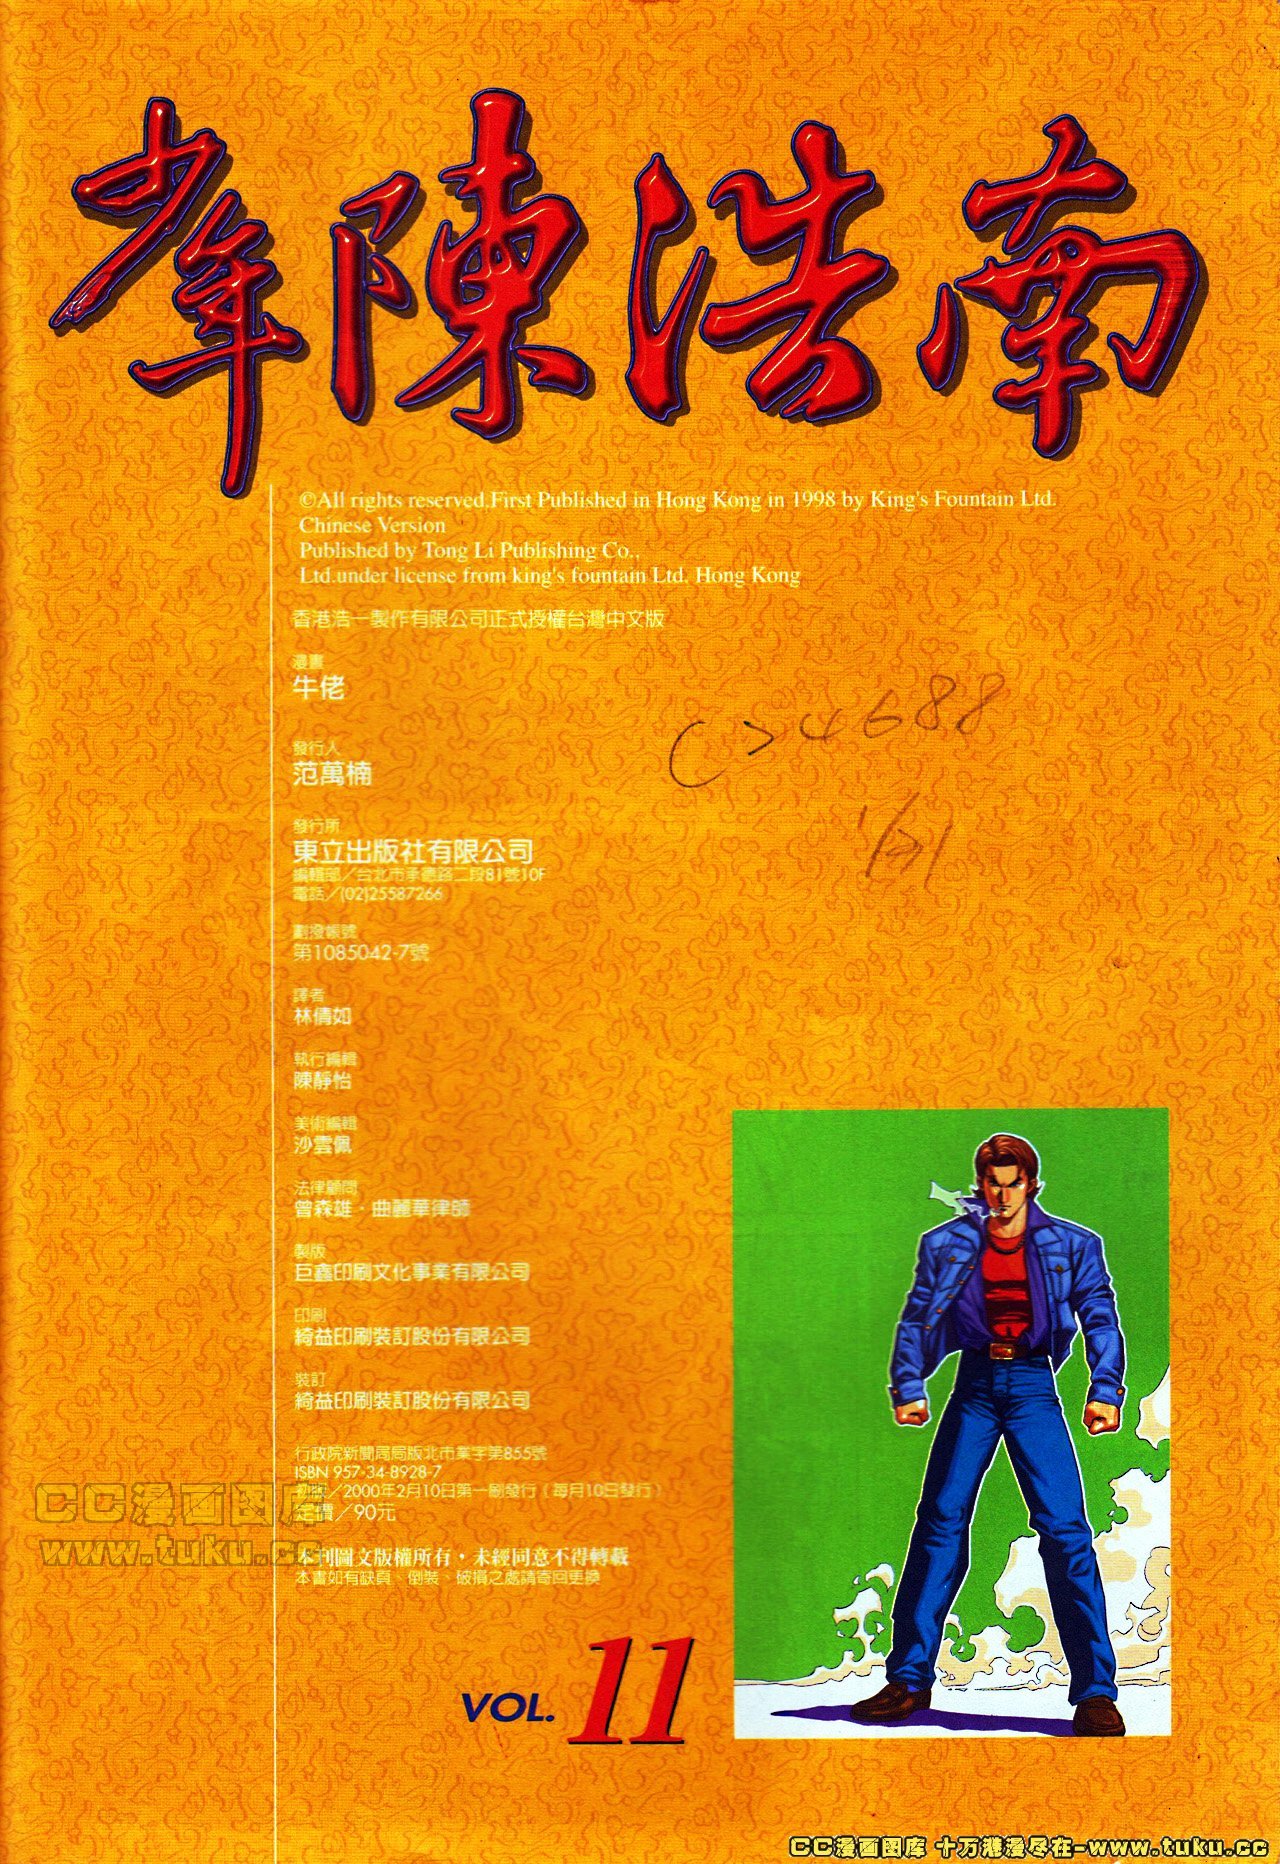 少年陳浩南
©All rights reserved.First Published in Hong Kong in 1998 by King's Fountain Ltd.
Chinese Version
Published by Tong Li Publishing Co.,
Ltd.under license from king's fountain Ltd. Hong Kong
香港浩一製作有限公司正式授權台灣中文版
漫畫
牛佬
發行人
范萬楠
發行所
東立出版社有限公司
編輯部／台北市承德路二段81號10F
電話／(02)25587266
劃撥帳號
第1085042-7號
譯者
林倩如
執行編輯
陳靜怡
美術編輯
沙雲佩
法律顧問
曾森雄·曲麗華律師
製版
巨鑫印刷文化事業有限公司
印刷
綺益印刷裝訂股份有限公司
裝訂
綺益印刷裝訂股份有限公司
行政院新聞局局版北市業字第855號
ISBN 957-34-8928-7
初版／2000年2月10日第一刷發行（每月10日發行）
定價／90元
本刊圖文版權所有，未經同意不得轉載
本書如有缺頁、倒裝、破損之處請寄回更換
VOL. 11
CC漫画图库
www.tuku.cc
CC漫画图库 十万港漫尽在-www.tuku.cc